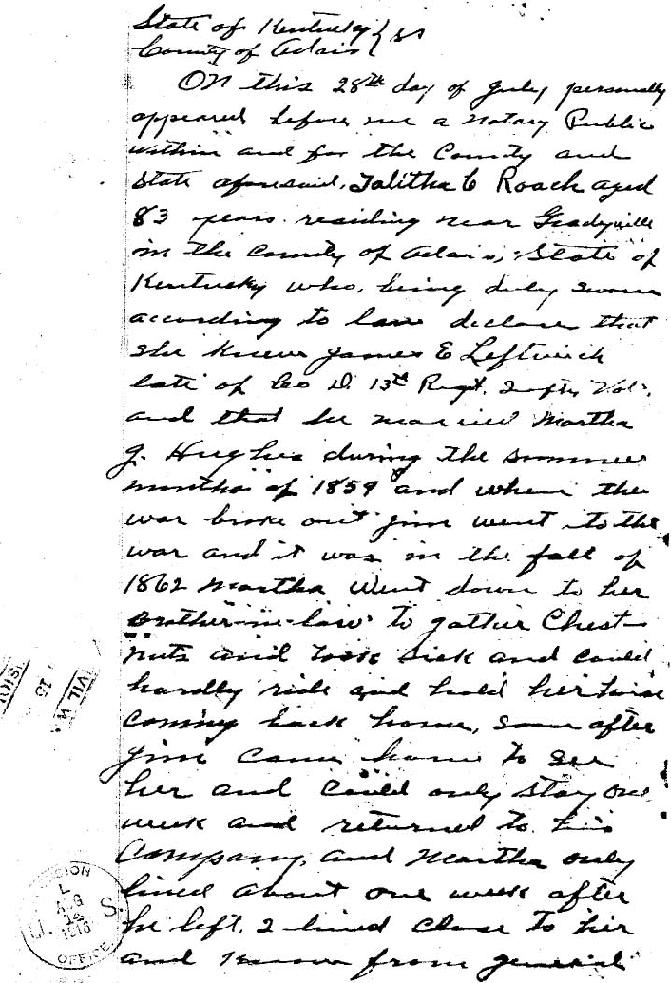 State of Kentucky } SS
County of Adair
On this 28th day of July personally
appeared before me a Notary Public
within and for the County and
State aforesaid, Talitha C Roach aged
83 years. residing near Gradyville
in the County of Adair, State of
Kentucky who, being duly sworn
according to law declare that
she knew James E Leftwich
late of Co D. 13th Regt. Infty Vol.
and that he married Martha
J. Hughes during the summer
months of 1859 and when the
war broke out Jim went to the
war and it was in the fall of
1862 Martha went down to her
Brother-in-law to gather Chest-
nuts and took sick and could
hardly ride and hold her twin
coming back home, soon after
Jim came home to see
her and could only stay one
week and returned to his
Company, and Martha only
lived about one week after
he left. I lived close to her
and know from general
CIVIL W
U. S.
AUG
14
OFFICE